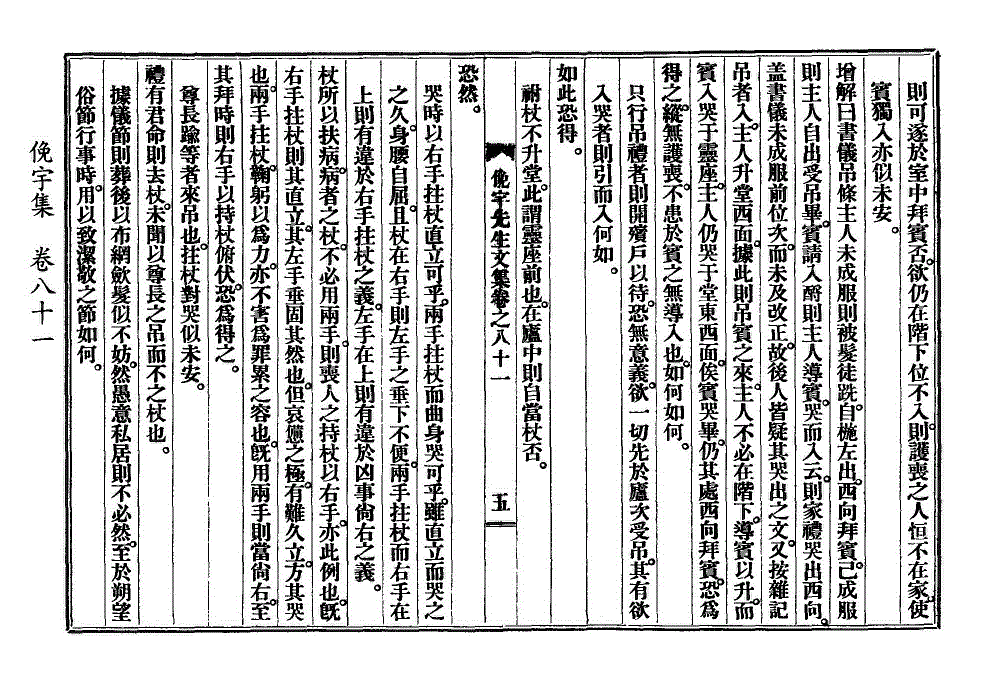 則可遂於室中拜賓否。欲仍在階下位不入則護喪之人恒不在家。使
賓獨入亦似未安。
增解曰書儀吊條主人未成服則被髮徒跣。自柂左出。西向拜賓。已成服
則主人自出受吊畢。賓請入酹則主人導賓。哭而入云。則家禮哭出西向。
盖書儀未成服前位次。而未及改正。故後人皆疑其哭出之文。又按雜記
吊者入。主人升堂西面。據此則吊賓之來。主人不必在階下。導賓以升。而
賓入哭于靈座。主人仍哭于堂東西面。俟賓哭畢。仍其處西向拜賓。恐爲
得之。縱無護喪。不患於賓之無導入也。如何如何。
只行吊禮者則開殯戶以待。恐無意義。欲一切先於廬次受吊。其有欲
入哭者則引而入何如。
如此恐得。
祔杖不升堂。此謂靈座前也。在廬中則自當杖否。
俛宇先生文集卷之八十一
五
恐然。
哭時以右手拄杖直立可乎。兩手拄杖而曲身哭可乎。雖直立而哭之
之久。身腰自屈。且杖在右手則左手之垂下不便。兩手拄杖而右手在
上則有違於右手拄杖之義。左手在上則有違於凶事尙右之義。
杖所以扶病。病者之杖。不必用兩手。則喪人之持杖以右手。亦此例也。旣
右手拄杖則其直立。其左手垂固其然也。但哀憊之極。有難久立。方其哭
也。兩手拄杖。鞠躬以爲力。亦不害爲罪累之容也。旣用兩手則當尙右。至
其拜時則右手以持杖俯伏。恐爲得之。
尊長踰等者來吊也。拄杖對哭似未安。
禮有君命則去杖。未聞以尊長之吊而不之杖也。
據儀節則葬後以布網斂髮似不妨。然愚意私居則不必然。至於朔望
俗節行事時。用以致潔敬之節如何。
俛宇集 卷八十一